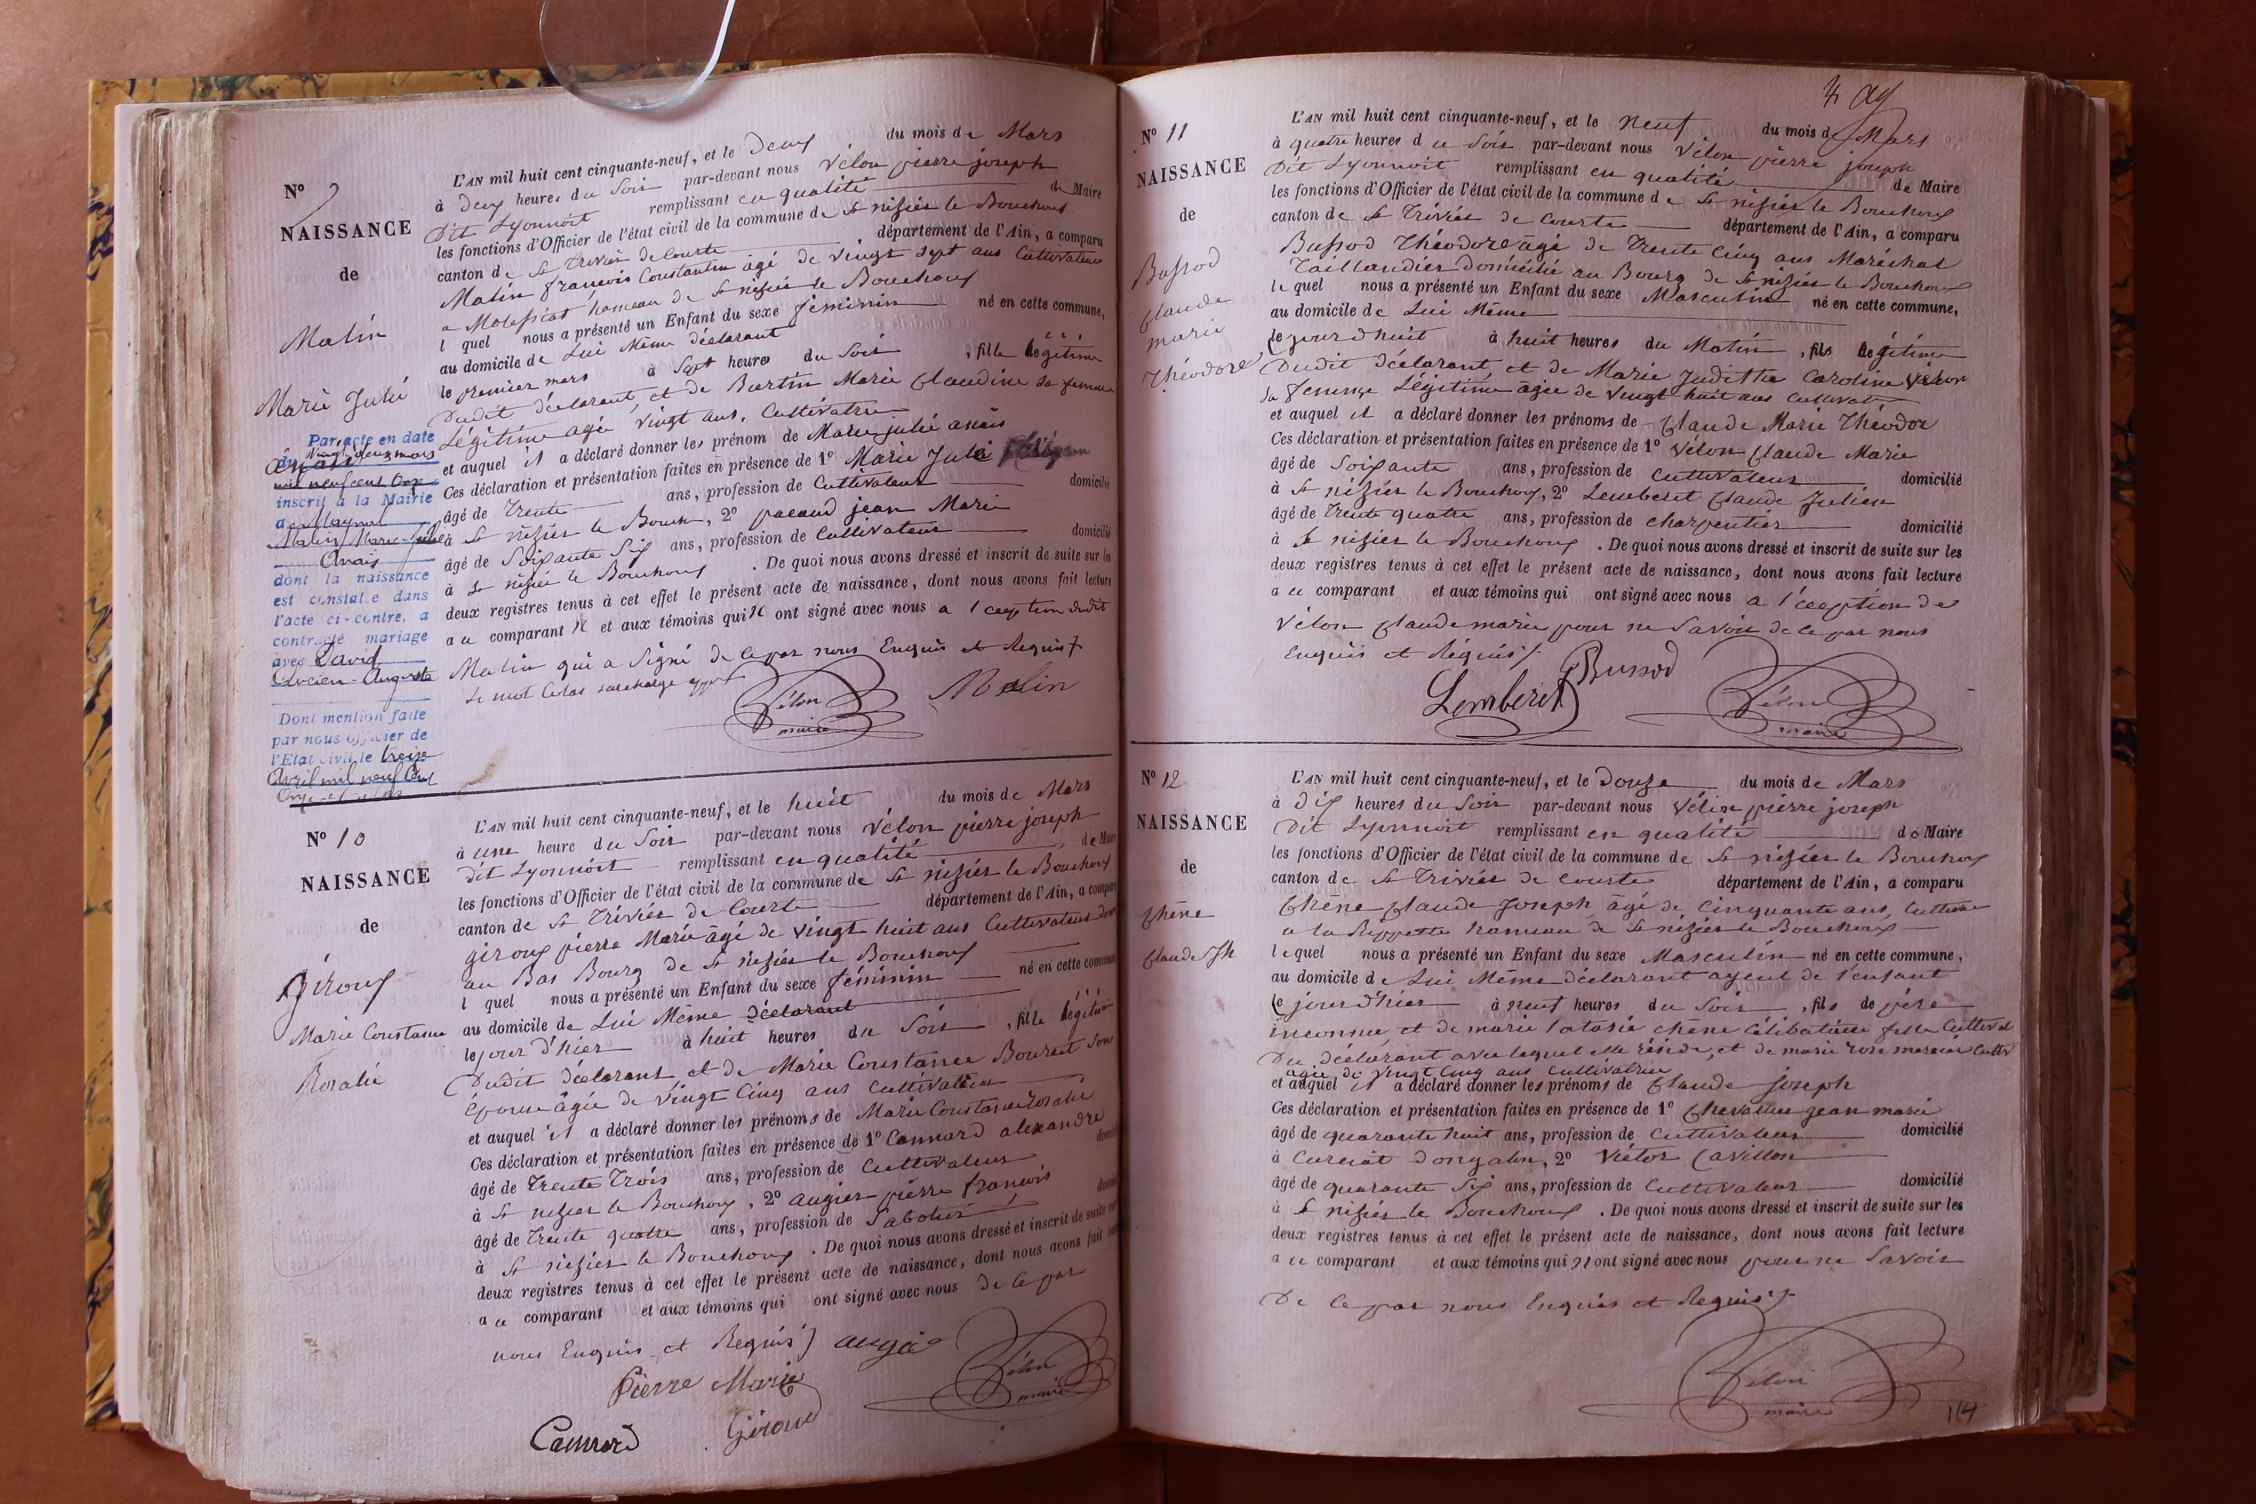 N° 9
NAISSANCE
de
Matin
Marie Julie
Anaïs
Par acte en date
du vingt deux mars
mil neuf cent onze
inscrit à la Mairie
a
Matin Marie-Julie
Anaïs
dont la naissance
est constatée dans
l'acte ci-contre, a
contracté mariage
avec David
Lucien-Auguste
Dont mention faite
par nous officier de
l'Etat civil le treize
avril mil neuf cent
onze
L'AN mil huit cent cinquante-neuf, et le deux du mois de Mars
à deux heures du Soir par-devant nous Vélon pierre joseph
dit Lyonnoit remplissant en qualité de Maire
les fonctions d'Officier de l'état civil de la commune de St nizier le Bouchoux
canton de St Trivier de Courte département de l'Ain, a comparu
Matin francois Constantin âgé de vingt sept ans Cultivateur
a hameau de St nizier le Bouchoux
l quel nous a présenté un Enfant du sexe féminin né en cette commune,
au domicile de Lui Même déclarant
le premier mars à Sept heures du Soir, fille légitime
Dudit déclarant et de Bertin Marie Claudine sa femme
Légitime agée vingt ans, Cultivatrice
et auquel il a déclaré donner les prénom de Marie julie anaïs
Ces déclaration et présentation faites en présence de 1° Marie Jule
âgé de Trente ans, profession de Cultivateur domicilié
à St nizier le Bouch, 2° pacaud jean Marie
âgé de Soixante Six ans, profession de Cultivateur domicilié
à St nizier le Bouchoux. De quoi nous avons dressé et inscrit de suite sur les
deux registres tenus à cet effet le présent acte de naissance, dont nous avons fait lecture
a ce comparant et aux témoins qui n ont signé avec nous a l'ception dudit
Matin qui a Signé de ce par nous Enquis et Requis
Le mot surchargé
Vélon
maire
Matin
N° 10
NAISSANCE
de
Giroux
Marie Constance
Rosalie
L'AN mil huit cent cinquante-neuf, et le huit du mois de Mars
à une heure du Soir par-devant nous Vélon pierre joseph
dit Lyonnoit remplissant en qualité de Maire
les fonctions d'Officier de l'état civil de la commune de St nizier le Bouchoux
canton de St Trivier de Courte département de l'Ain, a comparu
giroux pierre Marie âgé de vingt huit ans Cultivateur
au Bas Bourg de St nizier le Bouchoux
l quel nous a présenté un Enfant du sexe féminin né en cette commune
au domicile de Lui Même déclarant
le jour d'hier à huit heures du Soir, fille légitime
Dudit déclarant et de Marie Constance Bourcet Son
Épouse âgée de vingt Cinq ans cultivatrice
et auquel il a déclaré donner les prénoms de Marie Constance rosalie
Ces déclaration et présentation faites en présence de 1° Connard alexandre
âgé de Trente Trois ans, profession de Cultivateur
à St nizier le Bouchoux, 2° augier pierre francois
âgé de Trente quatre ans, profession de Sabotier
à St nizier le Bouchoux. De quoi nous avons dressé et inscrit de suite sur
deux registres tenus à cet effet le présent acte de naissance, dont nous avons fait
a ce comparant et aux témoins qui ont signé avec nous de ce par
nous Enquis et Requis
Pierre Marie
Giroud
Vélon
maire
N° 11
NAISSANCE
de
Bussod
Claude
marie
Théodore
L'AN mil huit cent cinquante-neuf, et le neuf du mois de Mars
à quatre heures du Soir par-devant nous Vélon pierre joseph
Dit Lyonnoit remplissant en qualité de Maire
les fonctions d'Officier de l'état civil de la commune de St nizier le Bouchoux
canton de St Trivier de Courte département de l'Ain, a comparu
Bussod Théodore âgé de Trente Cinq ans Maréchal
Taillandier Domicilié au Bourg de St nizier le Bouchoux
le quel nous a présenté un Enfant du sexe Masculin né en cette commune,
au domicile de Lui Même
le jour d huit à huit heures du Matin, fils légitime
Dudit déclarant, et de Marie Juditte Caroline Vélon
Sa femme Légitime âgée de vingt huit ans Cultivat
et auquel il a déclaré donner les prénoms de Claude Marie Théodor
Ces déclaration et présentation faites en présence de 1° Vélon Claude Marie
âgé de Soixante ans, profession de Cultivateur domicilié
à St nizier le Bouchoux, 2° Lemberet Claude Julien
âgé de Trente quatre ans, profession de charpentier domicilié
à St nizier le Bouchoux. De quoi nous avons dressé et inscrit de suite sur les
deux registres tenus à cet effet le présent acte de naissance, dont nous avons fait lecture
a ce comparant et aux témoins qui ont signé avec nous a l'ception de
Vélon Claude marie pour ne Savoir de ce par nous
Enquis et Réquis
Bussod
Lemberet
Vélon
maire
N° 12
NAISSANCE
de
Chêne
Claude Jph
L'AN mil huit cent cinquante-neuf, et le Douze du mois de Mars
à Dix heures du Soir par-devant nous Vélon pierre joseph
Dit Lyonnoit remplissant en qualité de Maire
les fonctions d'Officier de l'état civil de la commune de St nizier le Bouchoux
canton de St Trivier de Courte département de l'Ain, a comparu
Chêne Claude Joseph âgé de Cinquante ans, Cultivat
a la hameau de St nizier le Bouchoux
le quel nous a présenté un Enfant du sexe Masculin né en cette commune,
au domicile de Lui Même déclarant ayeul de l'enfant
le jour d'hier à neuf heures du Soir, fils de père
inconnu, et de marie chêne Célibataire fille Cultivat
Du déclarant avec lequel elle réside, et de marie rose Cultiv
agée de vingt Cinq ans Cultivatrice
et auquel il a déclaré donner les prénoms de Claude joseph
Ces déclaration et présentation faites en présence de 1° Chevallier jean marie
âgé de quarante huit ans, profession de Cultivateur domicilié
à Curciat dongalon, 2° Victor Cavillon
âgé de quarante Six ans, profession de Cultivateur domicilié
à St nizier le Bouchoux. De quoi nous avons dressé et inscrit de suite sur les
deux registres tenus à cet effet le présent acte de naissance, dont nous avons fait lecture
a ce comparant et aux témoins qui n ont signé avec nous pour ne Savoir
De ce par nous Enquis et Requis
Vélon
maire
114